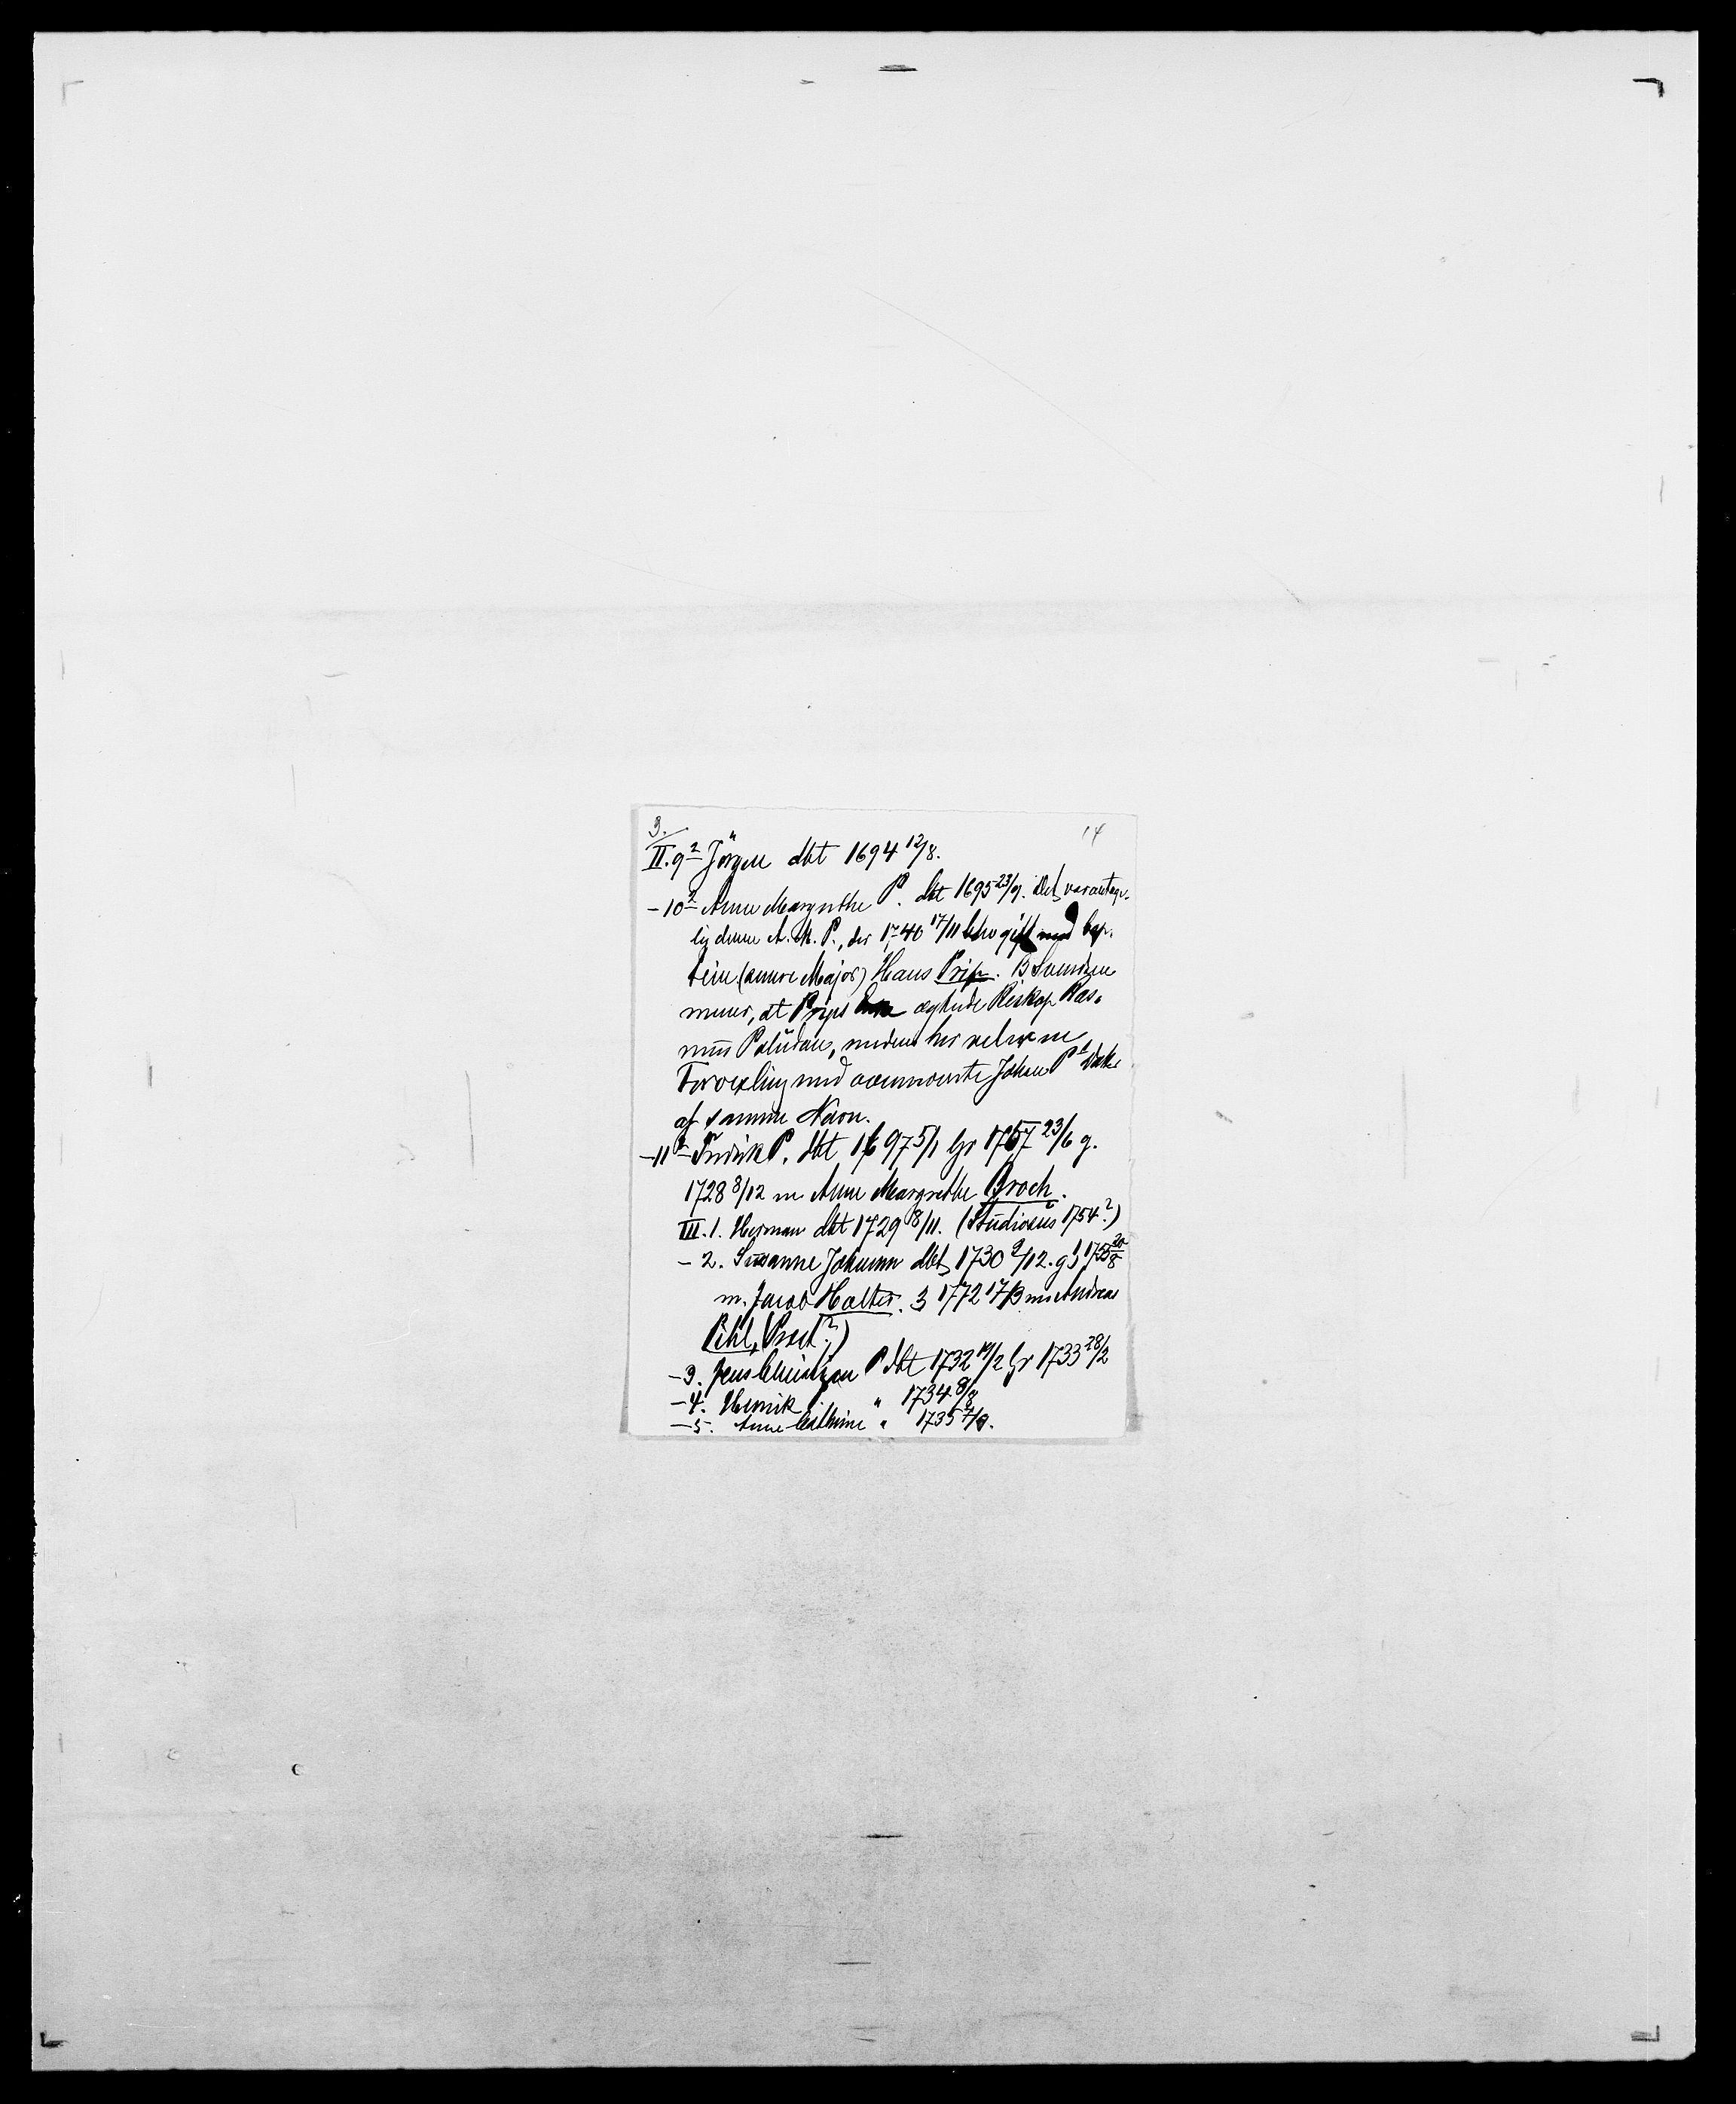 3. 14
II. 9² Jörgen dbt 1694 12/8.
- 10² Anne Margrethe P. dbt 1695 23/9. Det var antage-
lig denne A. M. P., der 1740 17/11 blev gift med Cap-
tein (senere Major) Hans Prip.
mener, at Prips ægtede Biskop Ras-
mus Paludan, medens her
Forvexling med Johan Ps
af samme Navn.
- 11² Fredrik P. dbt 1697 5/1 bgr 1757 23/6 g.
1728 8/12 m Anne Margrethe Broch.
III. 1. Herman dbt 1729 8/11. (Studiosus 1754?)
- 2. Susanne Johanne dbt 1730 9/12. g 1 1755 20/8
m. Jacob Holter. 3 1772 17/3 m Andreas
Pihl, (Prost?)
- 3. Jens Christian P dbt 1732 19/2 bgr 1733 28/2
- 4. Henrik P. " 1734 8/8
- 5. Anne Cathrine " 1735